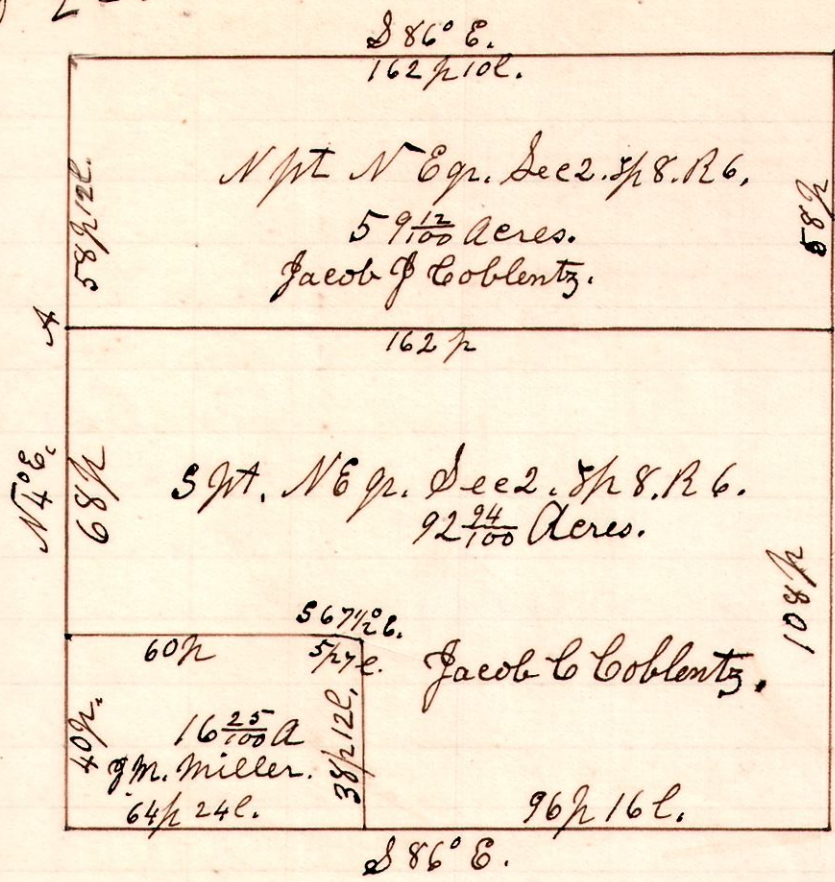 S 86° E.
162 p 10 l.
58 p 12 l.
N pt N E qr. Sec 2. Tp 8. R 6.
59 12/100 Acres.
Jacob J Coblentz.
58 p
A
162 p
N 4° E.
68 p
S Pt. N E qr. Sec 2. Tp 8. R 6.
92 94/100 Acres.
108 p
S 67 1/2° E.
60 p
5 p 7 l.
Jacob C Coblentz.
40 p.
16 25/100 A
J M. Miller.
38 p 12 l.
64 p 24 l.
96 p 16 l.
S 86° E.